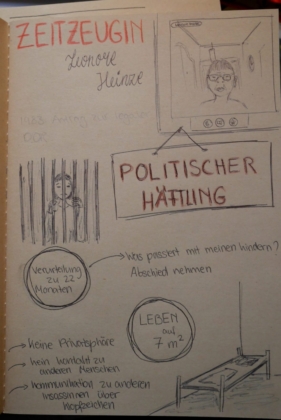 ZEITZEUGIN
Leonore
Heinze
POLITISCHER
HÄFTLING
Verurteilung
zu 22
Monaten
Was passiert mit meinen Kindern?
Abschied nehmen
LEBEN
auf
7 m²
keine Privatsphäre
kein Kontakt zu
anderen Menschen
Kommunikation zu anderen
Insassinnen über
Klopfzeichen